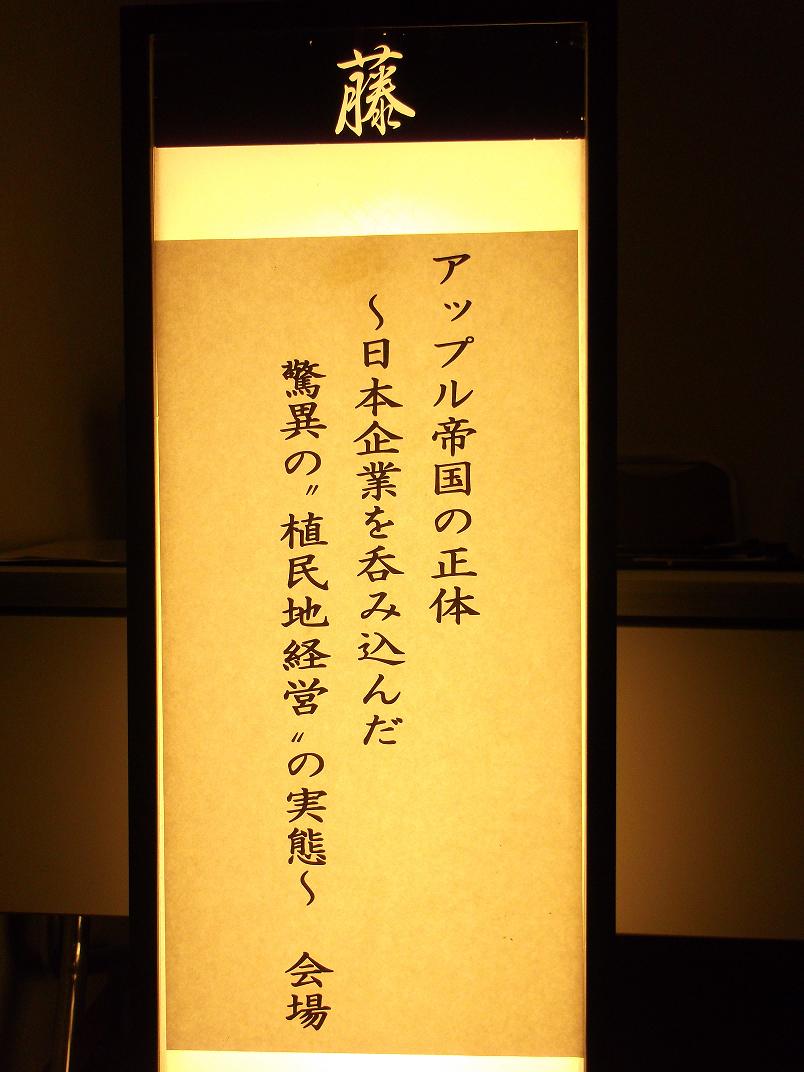 藤
アップル帝国の正体
〜日本企業を呑み込んだ
驚異の〃植民地経営〃の実態〜　会場